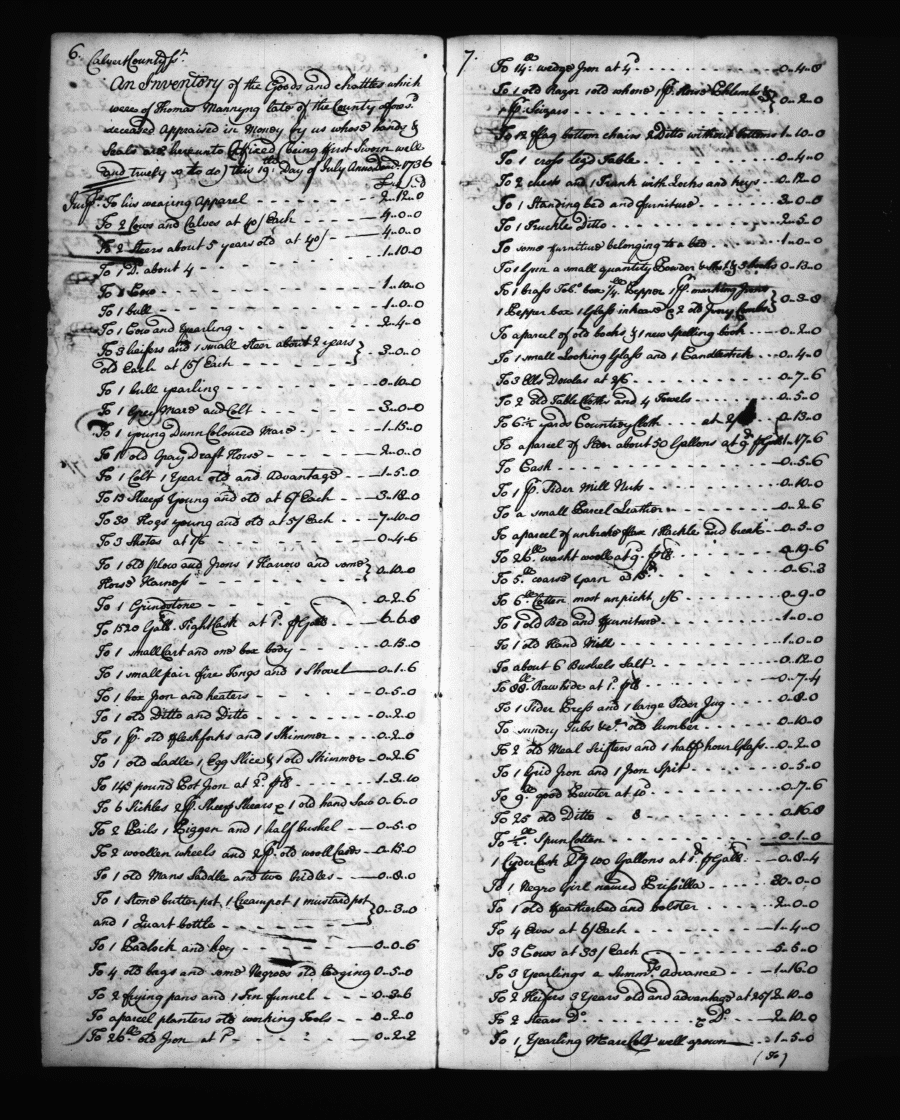 6.
Calvert County ss.t
An Inventory of the Goods and chattles which
were of Thomas Manning late of the County afores.d
deceased Appraised in Money by us whose hands &
Seals are hereunto Affixed (being first Sworn well
and truely so to do) this 19.th Day of July Anno Dom. 1736
£ s d
Imp.s To his wearing Apparel - - - 2-12-0
To 2 Cows and Calves at 40/ Each - - - 4-0-0
To 2 Steers about 5 years old at 40/ - - - 4-0-0
To 1 D.o about 4 - - - 1-10-0
To 1 Cow - - - 1-10-0
To 1 bull - - - 1-0-0
To 1 Cow and Yearling - - - 2-4-0
To 3 heifers and 1 small Steer about 2 years
old Each at 15/ Each } - - 3-0-0
To 1 bull yearling - - - 0-10-0
To 1 Grey Mare and Colt - - - 3-0-0
To 1 young Dunn Coloured Mare - - - 1-15-0
To 1 old Gray Draft Horse - - - 2-0-0
To 1 Colt 1 Year old and advantage - - - 1-5-0
To 13 Sheep Young and old at 6/ Each - - - 3-18-0
To 30 Hogs young and old at 5/ Each - - - 7-10-0
To 3 Shotes at 1/6 - - - 0-4-6
To 1 old plow and Irons 1 Harrow and some
Horse Harness } 0-10-0
To 1 Grindstone - - - 0-2-6
To 1520 Gall.s Tight Cask at 1.d p Gall - - - 6-6-8
To 1 small Cart and one box body - - - 0-15-0
To 1 small pair fire Tongs and 1 Shovel - - - 0-1-6
To 1 box Iron and heaters - - - 0-5-0
To 1 old Ditto and Ditto - - - 0-2-0
To 1 p.r old fleshforks and 1 Skimmer - - - 0-2-0
To 1 old Ladle 1 Egg Slice & 1 old Skimmer - 0-2-6
To 142 pound Pot Iron at 2.d p lb - - - 1-3-10
To 6 Sickles 2 p.r Sheep Shears & 1 old hand Saw 0-6-0
To 2 Pails 1 Piggen and 1 half bushel - - - 0-5-0
To 2 woollen wheels and 2 p.r old wooll Cards - 0-15-0
To 1 old Mans Saddle and two bridles - - - 0-8-0
To 1 Stone butterpot, 1 Creampot 1 mustardpot
and 1 Quart bottle } 0-3-0
To 1 Padlock and key - - - 0-0-6
To 4 old bags and some Negroes old bedging 0-5-0
To 2 frying pans and 1 Tin funnel - - - 0-3-6
To a parcel planters old working Tools - - 0-2-0
To 26.lb old Iron at 1.d - - - 0-2-2
7.
To 14.lb wedge Iron at 4.d - - - 0-4-8
To 1 old Razor 1 old whone 1 p.r Horse Phlembs &
1 p.r Scizars } 0-2-0
To 12 flag bottom chairs 2 Ditto without bottoms 1-10-0
To 1 cross leg'd Table - - - 0-4-0
To 2 chests and 1 Trunk with Locks and keys - - 0-12-0
To 1 Standing bed and furniture - - - 3-0-0
To 1 Truckle Ditto - - - 2-5-0
To some furniture belonging to a bed - - - 1-0-0
To 1 Gun a small quantity Powder & Shot & 3 0-13-0
To 1 brass Tob.o box 1/4 lb Pepper 1 p.r marking Irons
1 Pepper box 1 Glass inhorn & 2 old Ivory Combs } 0-3-8
To a parcel of old books & 1 new Spelling book - - - 0-2-0
To 1 small Looking Glass and 1 Candlestick - - - 0-4-0
To 3 Ells Dowlas at 2/6 - - - 0-7-6
To 2 old Table Cloths and 4 Towels - - - 0-5-0
To 6 1/2 yards Country Cloth at 2/ - - - 0-13-0
To a parcel of about 50 Gallons at 9.d p Gall 1-17-6
To Cash - - - 0-5-6
To 1 p.r Sider Mill Nuts - - - 0-10-0
To a small Parcel Leather - - - 0-2-6
To a parcel of unbroke flax 1 Hackle and break - - 0-5-0
To 26.lb washt wooll at 9.d p lb - - - 0-19-6
To 5.lb coarse Yarn at 15.d - - - 0-6-3
To 6.lb Cotton most unpickt 1/6 - - - 0-9-0
To 1 old Bed and furniture - - - 1-0-0
To 1 old Hand Mill - - - 1-0-0
To about 6 Bushels Salt - - - 0-12-0
To 88.lb Rawhide at 1.d p lb - - - 0-7-4
To 1 Sider Press and 1 large Sider Jug - - - 0-8-0
To sundry Tubs &c.a old lumber - - - 0-10-0
To 2 old Meal Scifters and 1 half hour Glass - - 0-2-0
To 1 Grid Iron and 1 Iron Spit - - - 0-5-0
To 9.lb good Pewter at 10.d - - - 0-7-6
To 25 old Ditto - 8 - - - 0-16-8
To 1/2.lb Spun Cotton - - - 0-1-0
1 CyderCask 100 Gallons at 1.d p Gall. - - - 0-8-4
To 1 Negro Girl named Prissilla - - - 30-0-0
To 1 old featherbed and bolster - - - 2-0-0
To 4 Ewes at 6/ Each - - - 1-4-0
To 3 Cows at 35/ Each - - - 5-5-0
To 3 Yearlings a Summ.r Advance - - - 1-16-0
To 2 Heifers 3 Years old and advantage at 25/ 2-10-0
To 2 Stears D.o - - - & D.o - - - 2-10-0
To 1 Yearling Mare Colt well grown - - - 1-5-0
(To)